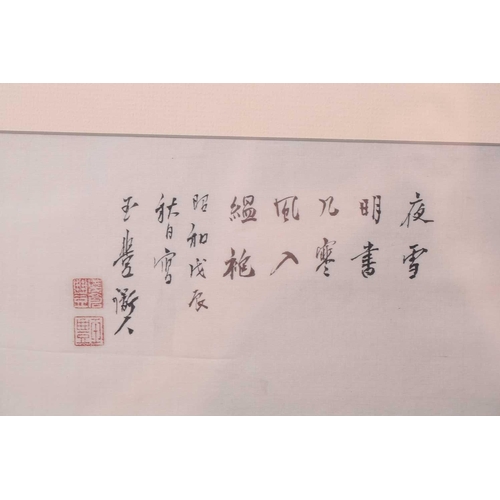 夜雪
明書
几寒
風入
縕袍
昭和戊辰
秋日寫
玉豊